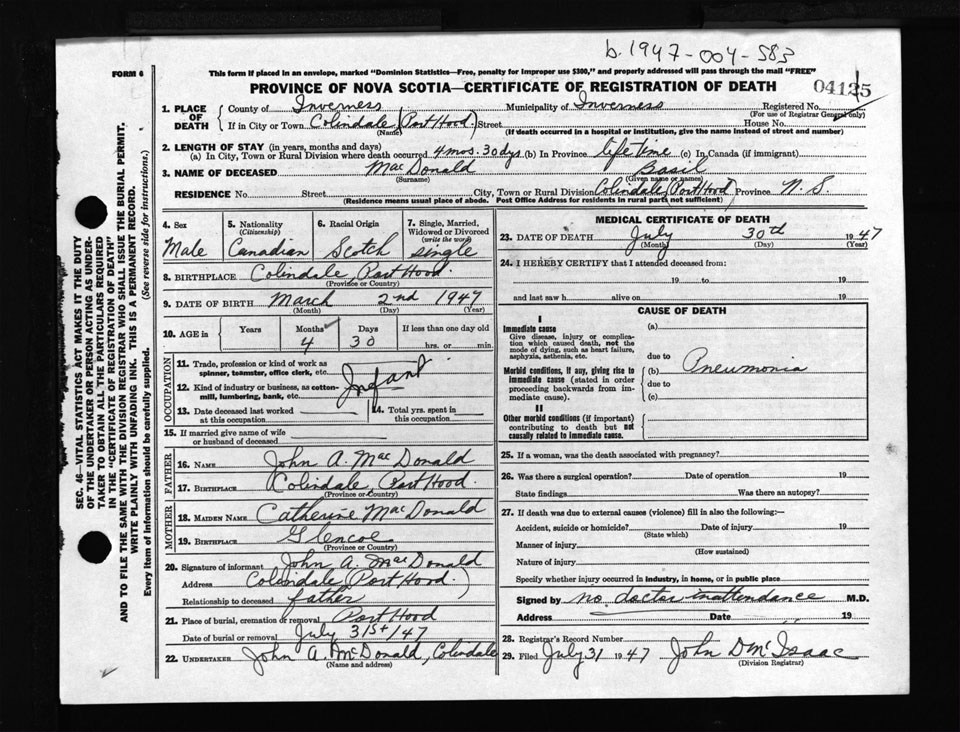 b. 1947-004-583
FORM 6
This form if placed in an envelope, marked "Dominion Statistics—Free, penalty for improper use $300," and properly addressed will pass through the mail "FREE"
PROVINCE OF NOVA SCOTIA—CERTIFICATE OF REGISTRATION OF DEATH
1. PLACE OF DEATH County of Inverness Municipality of Inverness Registered No.
(For use of Registrar General only)
If in City or Town Colindale (Port Hood) Street House No.
(Name) (If death occurred in a hospital or institution, give the name instead of street and number)
2. LENGTH OF STAY (in years, months and days)
(a) In City, Town or Rural Division where death occurred 4 mos. 30 dys. (b) In Province lifetime (c) In Canada (if immigrant)
3. NAME OF DECEASED MacDonald Basil
(Surname) (Given name or names)
RESIDENCE No. Street City, Town or Rural Division Colindale (Port Hood) Province N. S.
(Residence means usual place of abode. Post Office Address for residents in rural parts not sufficient)
4. Sex 5. Nationality 6. Racial Origin 7. Single, Married, Widowed or Divorced
(Citizenship) (write the word)
Male Canadian Scotch single
8. BIRTHPLACE Colindale, Port Hood.
(Province or Country)
9. DATE OF BIRTH March 2nd 1947
(Month) (Day) (Year)
10. AGE in Years Months Days If less than one day old
4 30 hrs. or min.
OCCUPATION
11. Trade, profession or kind of work as spinner, teamster, office clerk, etc.
Infant
12. Kind of industry or business, as cotton-mill, lumbering, bank, etc.
13. Date deceased last worked at this occupation 14. Total yrs. spent in this occupation
15. If married give name of wife or husband of deceased
FATHER
16. NAME John A. MacDonald
17. BIRTHPLACE Colindale, Port Hood.
(Province or Country)
MOTHER
18. MAIDEN NAME Catherine MacDonald
19. BIRTHPLACE Glencoe
(Province or Country)
20. Signature of informant John A. MacDonald
Address Colindale (Port Hood.)
Relationship to deceased father
21. Place of burial, cremation or removal Port Hood
Date of burial or removal July 31st/47
22. UNDERTAKER John A. McDonald, Colindale
(Name and address)
MEDICAL CERTIFICATE OF DEATH
23. DATE OF DEATH July 30th 1947
(Month) (Day) (Year)
24. I HEREBY CERTIFY that I attended deceased from:
19 to 19
and last saw h alive on 19
CAUSE OF DEATH
I
Immediate cause (a)
Give disease, injury or complication which caused death, not the mode of dying, such as heart failure, asphyxia, asthenia, etc.
due to
Morbid conditions, if any, giving rise to immediate cause (stated in order proceeding backwards from immediate cause).
(b) Pneumonia
due to
(c)
II
Other morbid conditions (if important) contributing to death but not causally related to immediate cause.
25. If a woman, was the death associated with pregnancy?
26. Was there a surgical operation? Date of operation 19
State findings Was there an autopsy?
27. If death was due to external causes (violence) fill in also the following:—
Accident, suicide or homicide? Date of injury 19
(State which)
Manner of injury
(How sustained)
Nature of injury
Specify whether injury occurred in industry, in home, or in public place
Signed by no doctor in attendance M.D.
Address Date 19
28. Registrar's Record Number
29. Filed July 31 1947 John D McIsaac
(Division Registrar)
SEC. 46—VITAL STATISTICS ACT MAKES IT THE DUTY
OF THE UNDERTAKER OR PERSON ACTING AS UNDER-
TAKER TO OBTAIN ALL THE PARTICULARS REQUIRED
IN THE "CERTIFICATE OF REGISTRATION OF DEATH"
AND TO FILE THE SAME WITH THE DIVISION REGISTRAR WHO SHALL ISSUE THE BURIAL PERMIT.
WRITE PLAINLY WITH UNFADING INK. THIS IS A PERMANENT RECORD.
Every item of information should be carefully supplied. (See reverse side for instructions.)